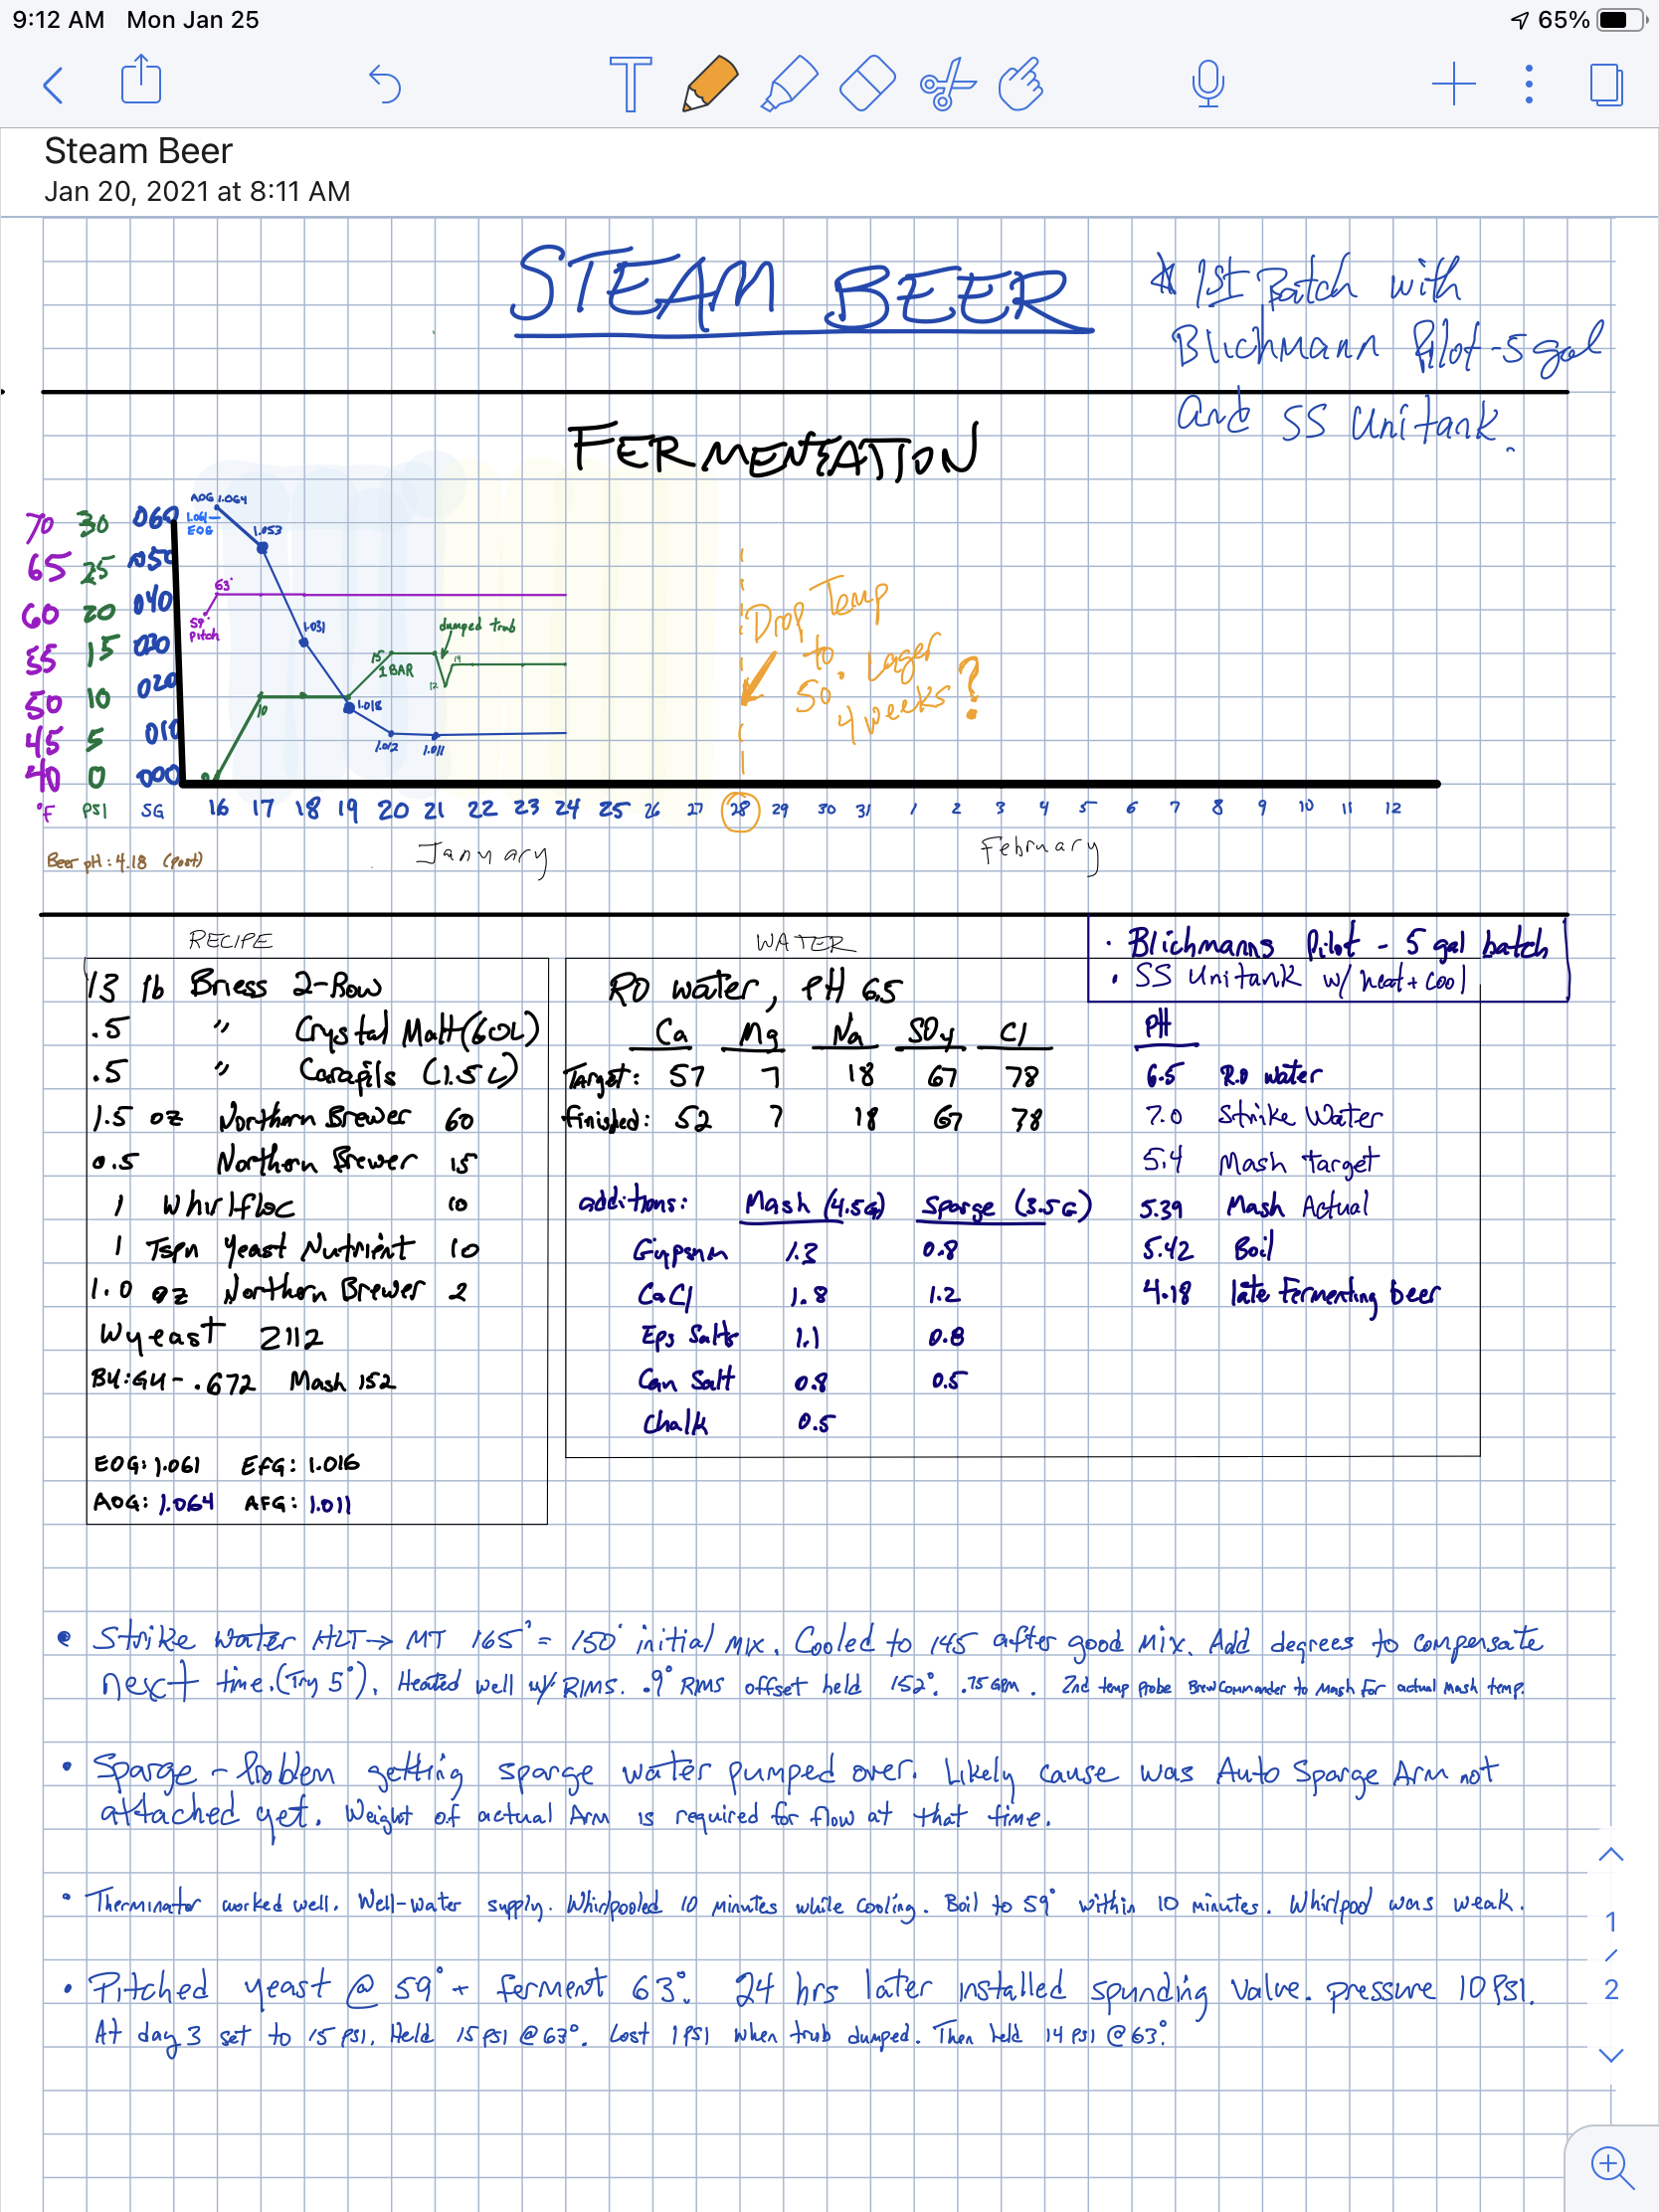 9:12 AM Mon Jan 25
65%
Steam Beer
Jan 20, 2021 at 8:11 AM
STEAM BEER
* 1st Batch with
Blichmann Pilot - 5 gal
and SS Unitank.
FERMENTATION
AOG 1.064
1.061 -
EOG
1.053
63°
59°
pitch
1.031
dumped trub
15
1 BAR
14
12
10
1.018
1.012
1.011
0
Drop Temp
to
50° Lager
4 weeks?
70 30 060
65 25 050
60 20 040
55 15 030
50 10 020
45 5 010
40 0 000
°F PSI SG
16 17 18 19 20 21 22 23 24 25 26 27 28 29 30 31 1 2 3 4 5 6 7 8 9 10 11 12
Beer pH: 4.18 (post)
January
February
RECIPE
13 lb Briess 2-Row
.5 " Crystal Malt (60L)
.5 " Carapils (1.5L)
1.5 oz Northern Brewer 60
0.5 Northern Brewer 15
1 Whirlfloc 10
1 Tspn Yeast Nutrient 10
1.0 oz Northern Brewer 2
Wyeast 2112
BU:GU - .672 Mash 152
EOG: 1.061 EFG: 1.016
AOG: 1.064 AFG: 1.011
WATER
RO water, pH 6.5
Ca Mg Na SO4 Cl
Target: 57 7 18 67 78
Finished: 52 7 18 67 78
additions: Mash (4.5G) Sparge (3.5G)
Gypsum 1.3 0.8
CaCl 1.8 1.2
Eps Salts 1.1 0.8
Can Salt 0.8 0.5
Chalk 0.5
• Blichmanns Pilot - 5 gal batch
• SS Unitank w/ heat + cool
PH
6.5 R.O Water
7.0 Strike Water
5.4 Mash target
5.39 Mash Actual
5.42 Boil
4.18 late fermenting beer
• Strike Water HLT → MT 165° = 150° initial mix. Cooled to 145 after good mix. Add degrees to compensate
next time. (Try 5°). Heated well w/ RIMS. .9° RIMS offset held 152°. .75 GPM. 2nd temp probe BrewCommander to Mash for actual mash temp.
• Sparge - Problem getting sparge water pumped over. Likely cause was Auto Sparge Arm not
attached yet. Weight of actual Arm is required for flow at that time.
• Therminator worked well. Well-water supply. Whirlpooled 10 minutes while cooling. Boil to 59° within 10 minutes. Whirlpool was weak.
• Pitched yeast @ 59° + ferment 63°. 24 hrs later installed spunding valve. pressure 10 PSI.
At day 3 set to 15 PSI. Held 15 PSI @ 63°. Lost 1 PSI when trub dumped. Then held 14 PSI @ 63°.
1
/
2